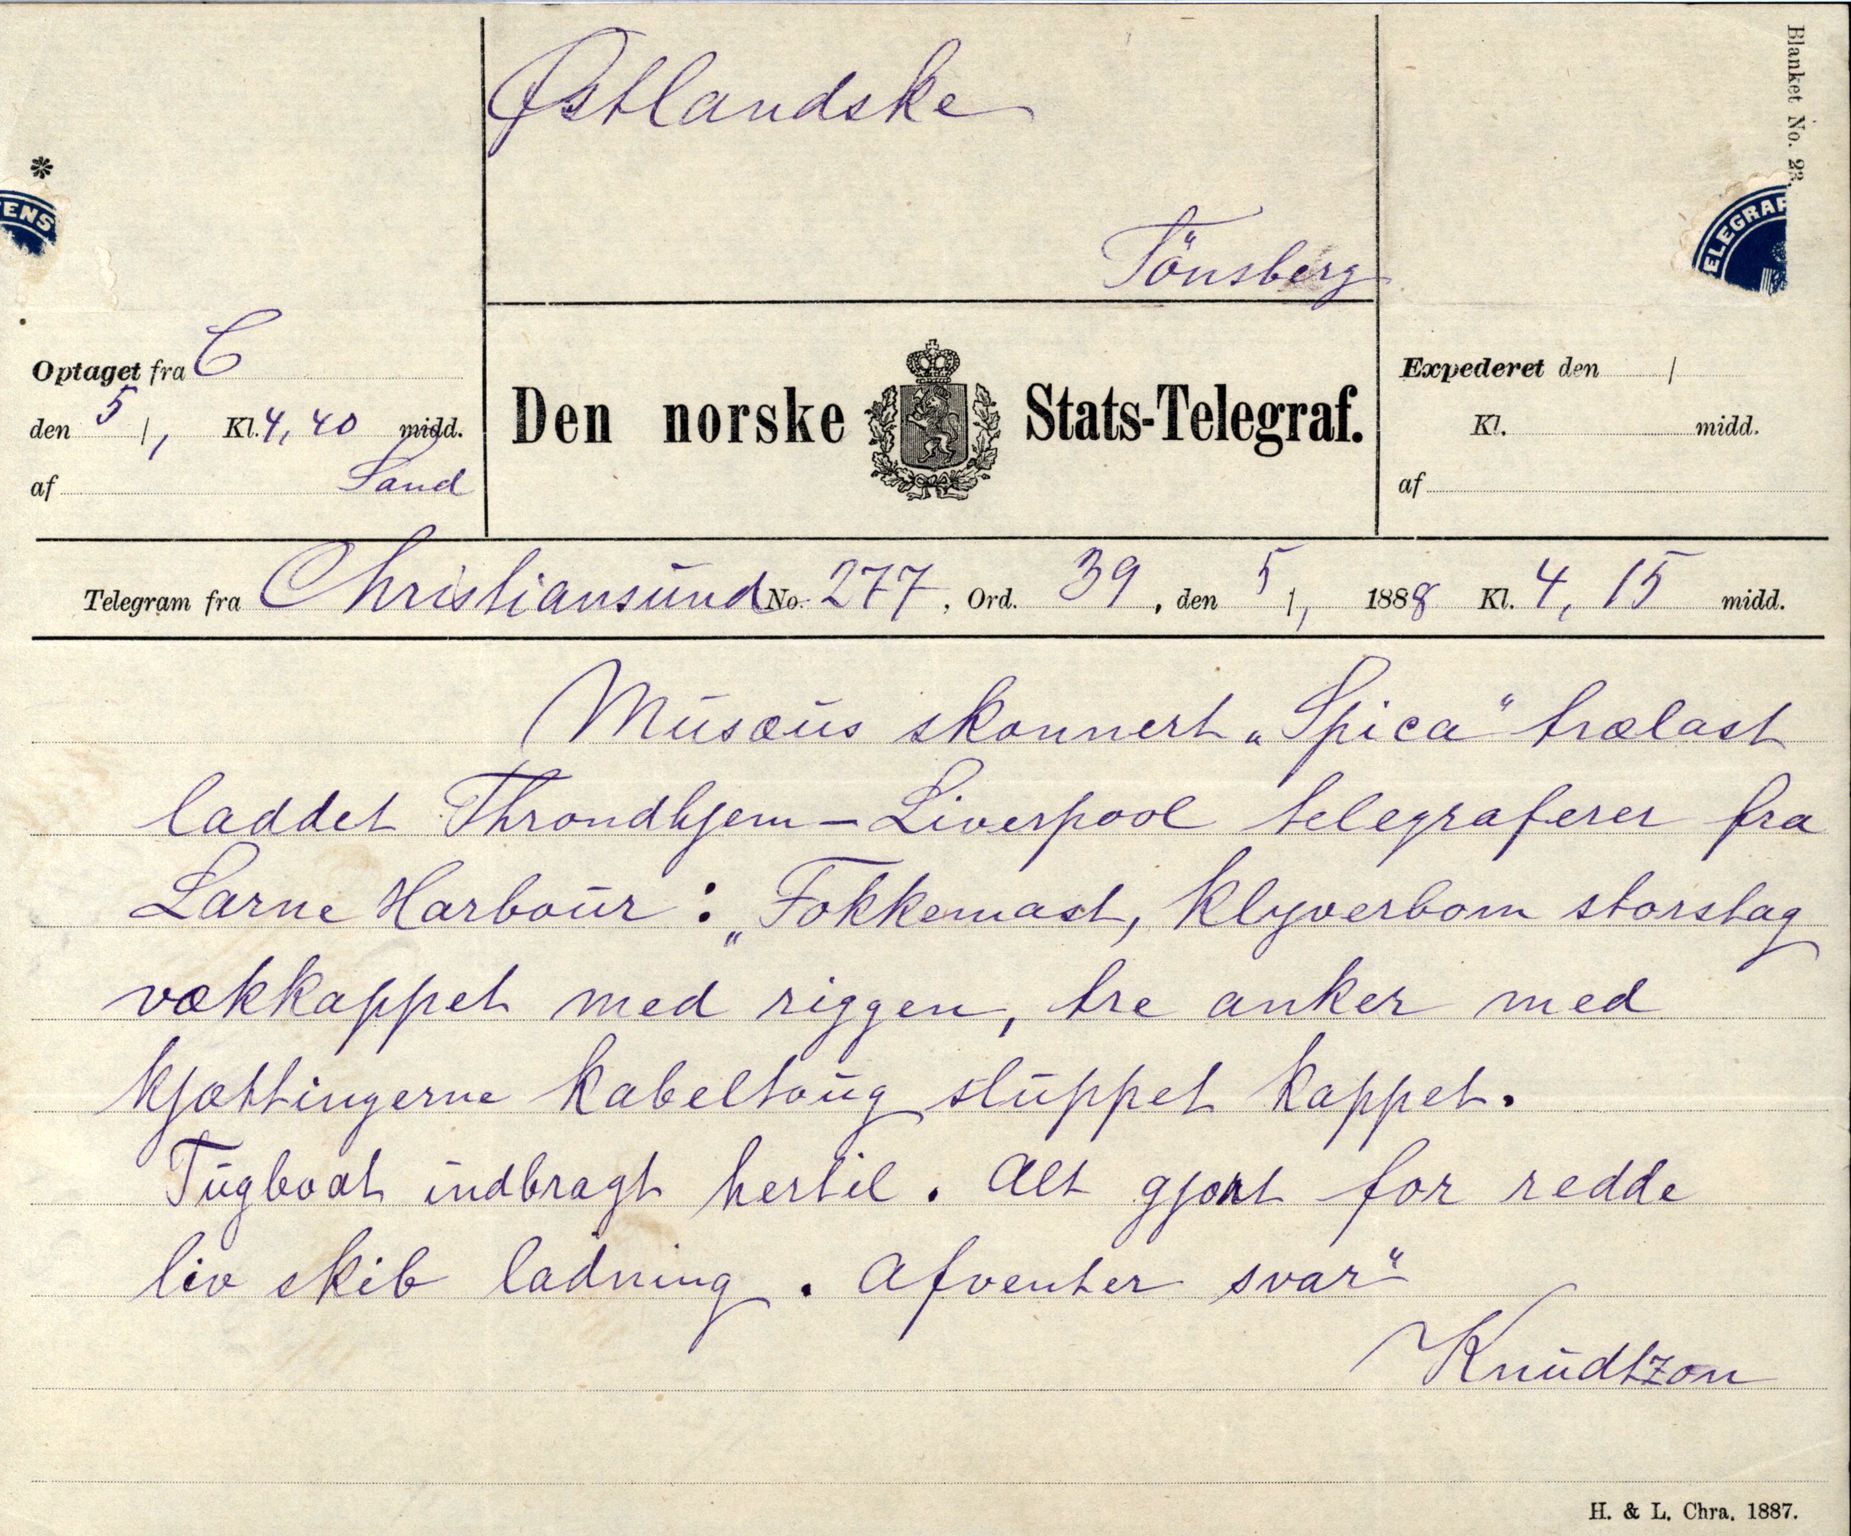 Østlandske
Tönsberg
Blanket No. 23.
ENS
ELEGRAF
Optaget fra C
den 5/1, Kl. 4,40 midd.
af Sand
Den norske Stats-Telegraf.
Expederet den /
Kl. midd.
af
Telegram fra Christiansund No. 277, Ord. 39, den 5/1, 1888 Kl. 4,15 midd.
Musæus skonnert „Spica“ trælast
laddet Throndhjem - Liverpool telegraferer fra
Larne Harbour : „Fokkemast, klyverbom storstag
vækkappet med riggen, tre anker med
kjættingerne kabeltoug sluppet kappet.
Tugboat indbragt hertil. Alt gjort for redde
liv skib ladning. Afventer svar“
Knudtzon
H. & L. Chra. 1887.